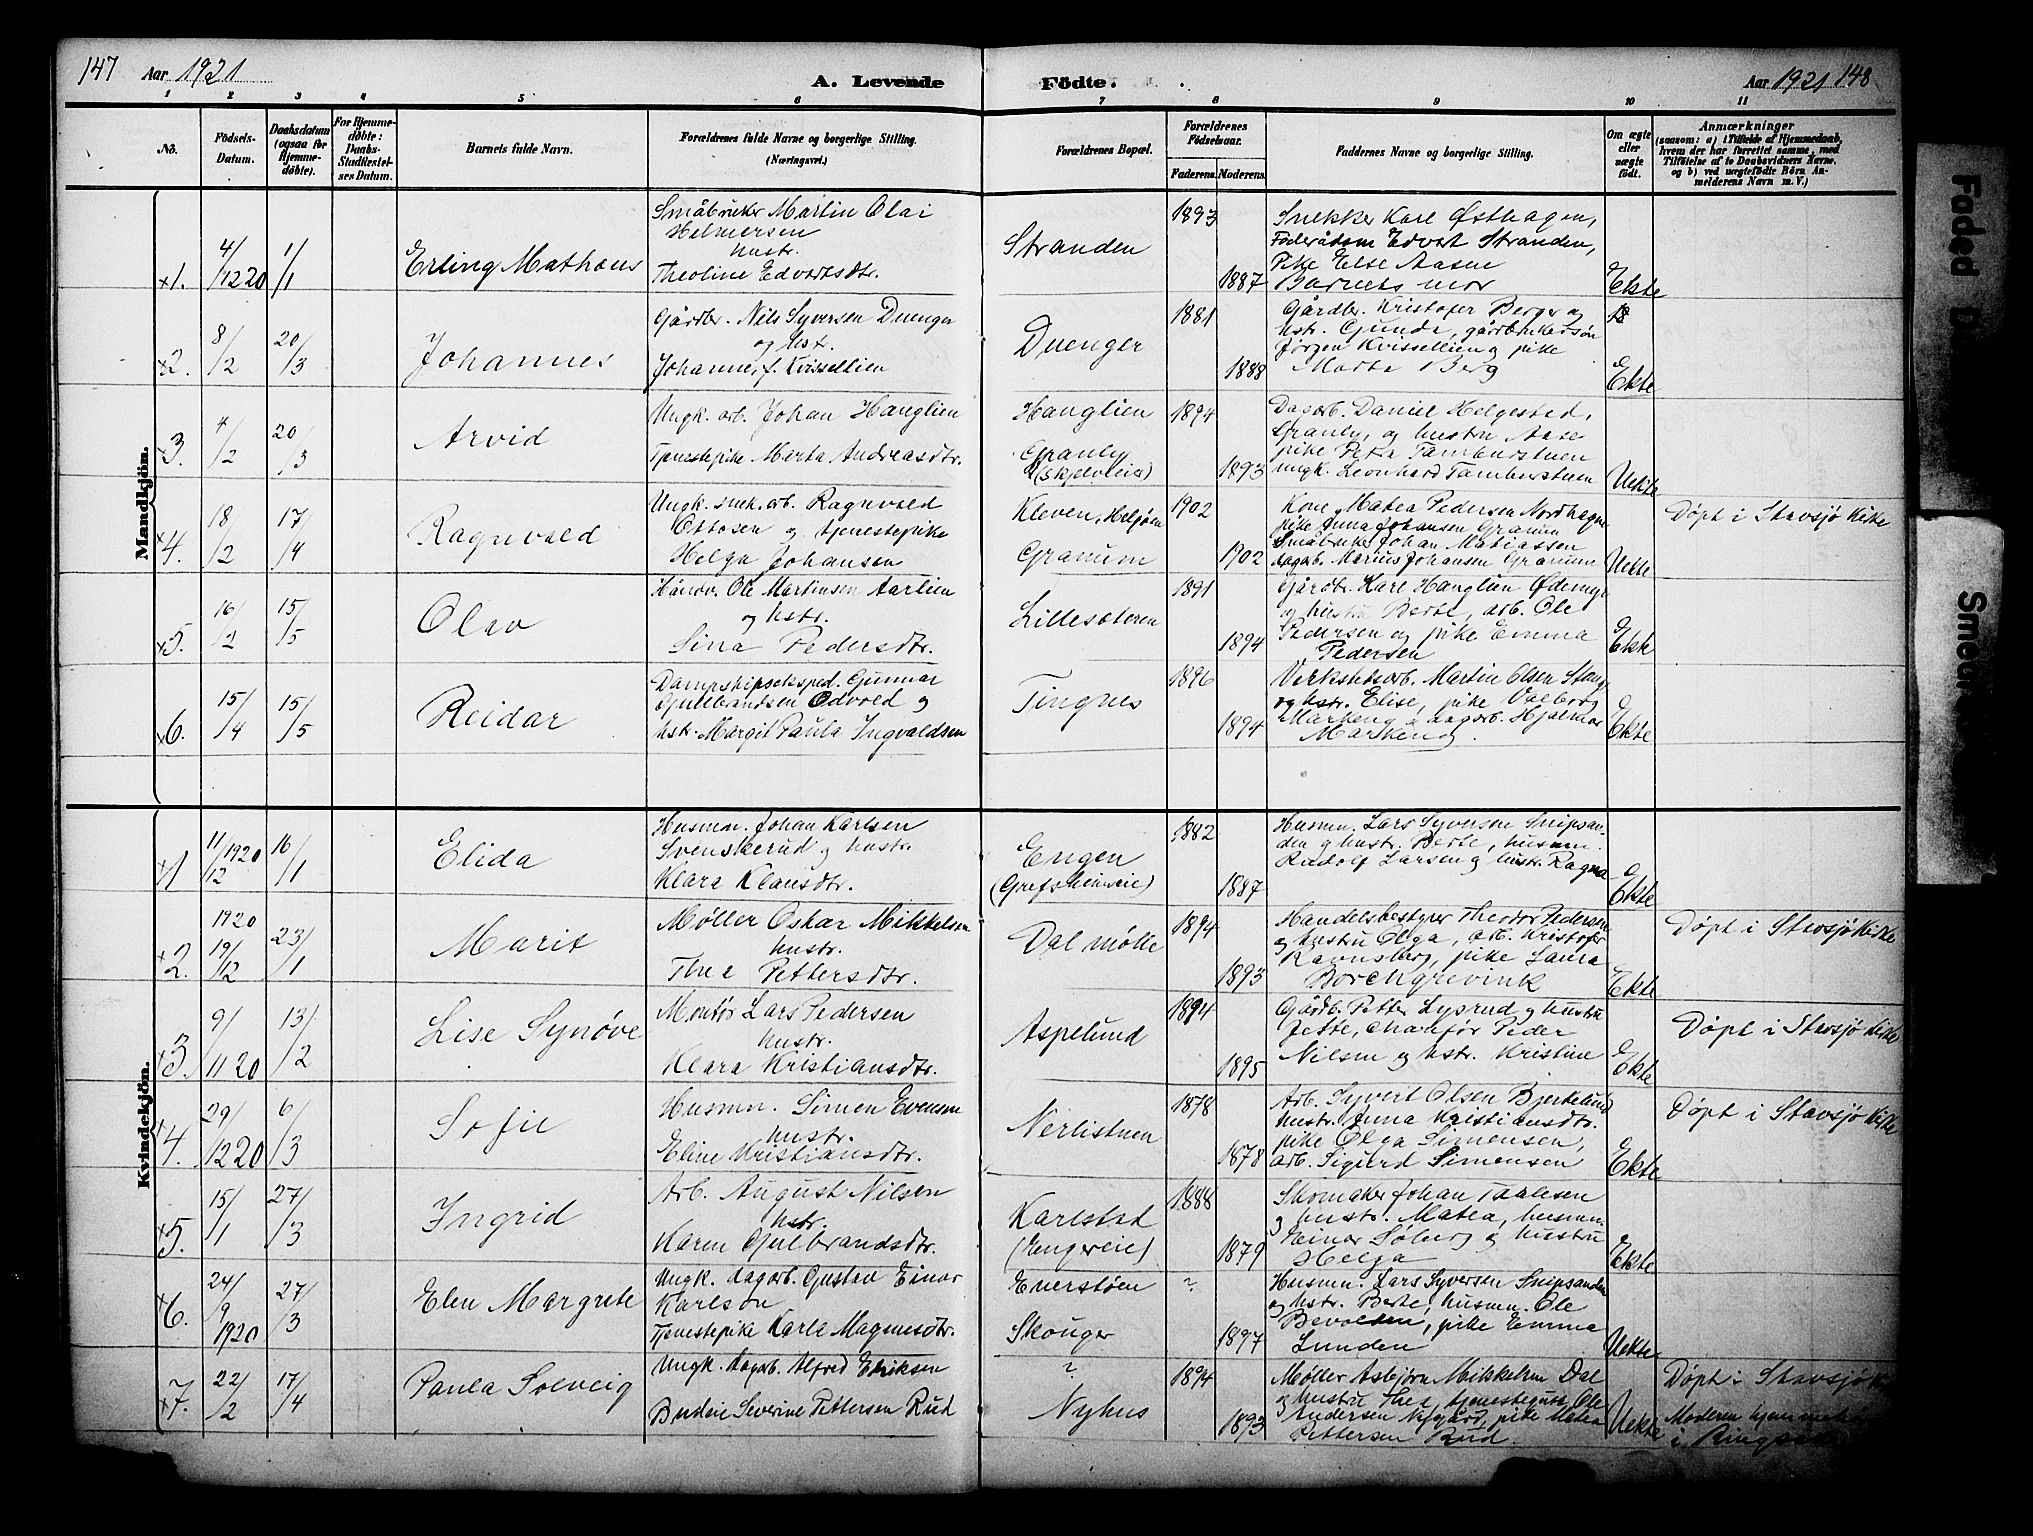 147 Aar 1921 A. Levende Födte. Aar 1921 148
1 2 3 4 5 6 7 8 9 10 11
No. Födsels-Datum. Daabsdatum (ogsaa for Hjemmedöbte). For Hjemmedöbte: Daabs-Stadfæstelses Datum. Barnets fulde Navn. Forældrenes fulde Navne og borgerlige Stilling. (Næringsvei.) Forældrenes Bopæl. Forældrenes Födselsaar. Faderens. Moderens. Faddernes Navne og borgerlige Stilling. Om ægte eller uægte födt. Anmærkninger (saasom: a) i Tilfælde af Hjemmedaab, hvem der har forrettet samme, med Tilföielse af to Daabsvidners Navne, og b) ved uægtefödte Börn Anmelderens Navn m. V.)
Mandkjön.
1. 4/12 20 1/1 Erling Mathæus
Småbruker Martin Olai
Helmersen
hustr.
Theoline Edvartsdtr.
Stranden 1893 1887
Snekker Karl Østhagen,
Föderådsm Edvart Stranden,
Pike Else Aasen
Barnets mor
Ekte
2. 8/2 20/3 Johannes
Gårdbr. Nils Syversen Duenger
og hst.
Johanne, f. Kvissellien
Duenger 1881 1888
Gårdbr. Kristofer Berger og
hstr. Gunde, gårdbrukersøn
Jørgen Kvissellien og pike
Marte Berg
Ekte
3. 4/2 20/3 Arvid
Ungk. arb. Johan Hanglien
Tjenestepike Marta Andreasdtr.
Hanglien
Granly
(Skjelveie)
1894 1893
Dagarb. Daniel Helgestad,
Granly, og hustru Aase
pike Petra Tamburstuen
ungk. Leonhard Tamburstuen
Uekte
4. 18/2 17/4 Ragnvald
Ungk. snek. arb. Ragnvald
Ottosen og tjenestepike
Helga Johansen
Kleven, Helgøen
Granum
1902 1902
Kone Matea Pedersen Nordhagen
pike Anna Johansen Granum
Småbruker Johan Matiassen
dagarb. Marius Johansen Granum
Uekte Døpt i Stavsjø Kirke
5. 16/2 15/5 Olav
Håndv. Ole Martinsen Aarlien
og hstr.
Lina Pedersdtr.
Lillesæteren 1891 1894
Gårdbr. Karl Hanglien Ødemyr
og hustru Berte, arb. Ole
Pedersen og pike Emma
Pedersen
Ekte
6. 15/4 15/5 Reidar
Dampskipseksped. Gunnar
Gulbrandsen Odvold og
hstr. Margit Paula Ingvaldsen
Tingnes 1896 1894
Verkstedsarb. Martin Olsen Stang
og hstr. Elise, pike Valborg
Markeng og dagarb. Hjalmar
Markeng.
Ekte
Kvindekjön.
1. 11/12 1920 16/1 Elida
Husmn. Johan Karlsen
Svenskerud og hustr.
Klara Klausdtr.
Engen
(Grefsheimeie)
1882 1887
Husmn. Lars Syversen Snipsan-
den og hustr. Berte, husmn.
Rudolf Larsen og hustr. Ragna
Ekte
2. 1920 19/12 23/1 Marit
Møller Oskar Mikkelsen
hustr.
Thea Pettersdtr.
Dal mølle 1894 1893
Handelsbestyrer Theodor Pedersen
og hustru Olga, arb. Kristofer
Ravnsberg, pike Laura
Borchgrevink
Ekte Døpt i Stavsjø Kirke
3. 9/11 20 13/2 Lise Synøve
Montør Lars Pedersen
hustr.
Klara Kristiansdtr.
Aspelund 1894 1895
Gårdb. Petter Lysrud og hustru
Jette, chaufør Peder
Nilsen og hstr. Kristine
Ekte Døpt i Stavsjø Kirke
4. 29/12 20 6/3 Sofie
Husmn. Simen Evensen
hustr.
Eline Kristiansdtr.
Nerlistuen 1878 1878
Arb. Syvert Olsen Bjerkelund
hustr. Anna Kristiansdtr.
pike Olga Simensen,
arb. Sigurd Simensen
Ekte Døpt i Stavsjø Kirke
5. 15/1 27/3 Ingrid
Arb. August Nilsen
hstr.
Karen Gulbrandsdtr.
Karlstad
(Engereie)
1888 1879
Skomaker Johan Paulsen
og hustr. Matea, husmn.
Einar Søberg og hustru
Helga
Ekte
6. 24/9 1920 27/3 Elen Margrete
Ungk. dagarb. Gustav Einar
Karlson
Tjenestepike Karla Magnusdtr.
Everstøen
Skouger
? 1897
Husmn. Lars Syversen Snipsanden
og hstr. Berte, husmn. Ole
Bevolden, pike Emma
Lunden
Uekte
7. 22/2 17/4 Paula Solveig
Ungk. dagarb. Alfred Eriksen
Budeie Severine Pettersen Rud
?
Nyhus
1894 1893
Møller Asbjørn Mikkelsen Dal
og hustru Thea, tjenestegut Ole
Andersen Nygård, pike Matea
Pettersen Rud.
Uekte Døpt i Stavsjø
Moderen hjemmehør.
i Ringsaker
Faded D
Smeared